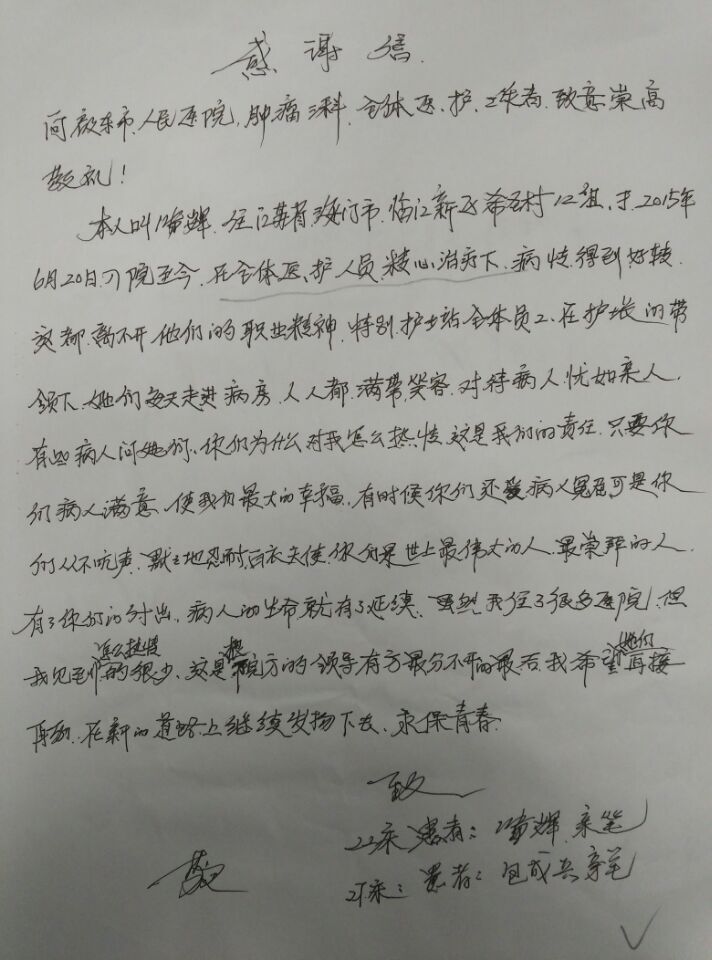 感谢信
向启东市人民医院,肿瘤三科,全体医、护、工作者,致意崇高
敬礼!
本人叫 辉,住江苏省海门市,临江新区希 村12组,于2015年
6月20日入院至今,在全体医、护人员,精心治疗下,病情得到好转,
这都离不开他们的职业精神,特别护士站全体员工,在护士长的带
领下,她们每天走进病房,人人都满带笑容,对待病人,忧如亲人,
有些病人问她们,你们为什么对我怎么热情,这是我们的责任,只要你
们病人满意,使我们最大的幸福,有时候你们还受病人冤屈可是你
们从不吭声,默默地忍耐,白衣天使,你们是世上最伟大的人,最崇拜的人,
有了你们的付出,病人的生命就有了延续,虽然我住了很多医院,但
我见到怎么热情的很少,这是根院方的领导有方最分不开的最后我希望她们再接
再励,在新的道路上继续发扬下去,永保青春.
致
22床患者: 辉 亲笔
敬
21床:患者:包成兵亲笔